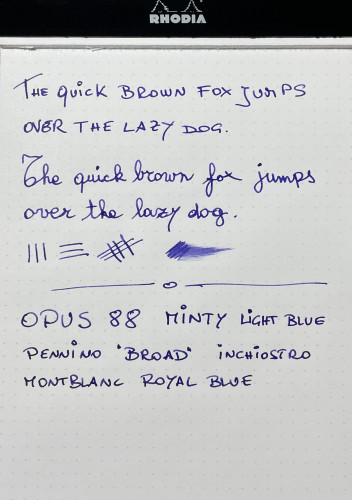 RHODIA
THE QUICK BROWN FOX JUMPS
OVER THE LAZY DOG.
The quick brown fox jumps
over the lazy dog.
OPUS 88 MINTY LIGHT BLUE
PENNINO "BROAD" INCHIOSTRO
MONTBLANC ROYAL BLUE